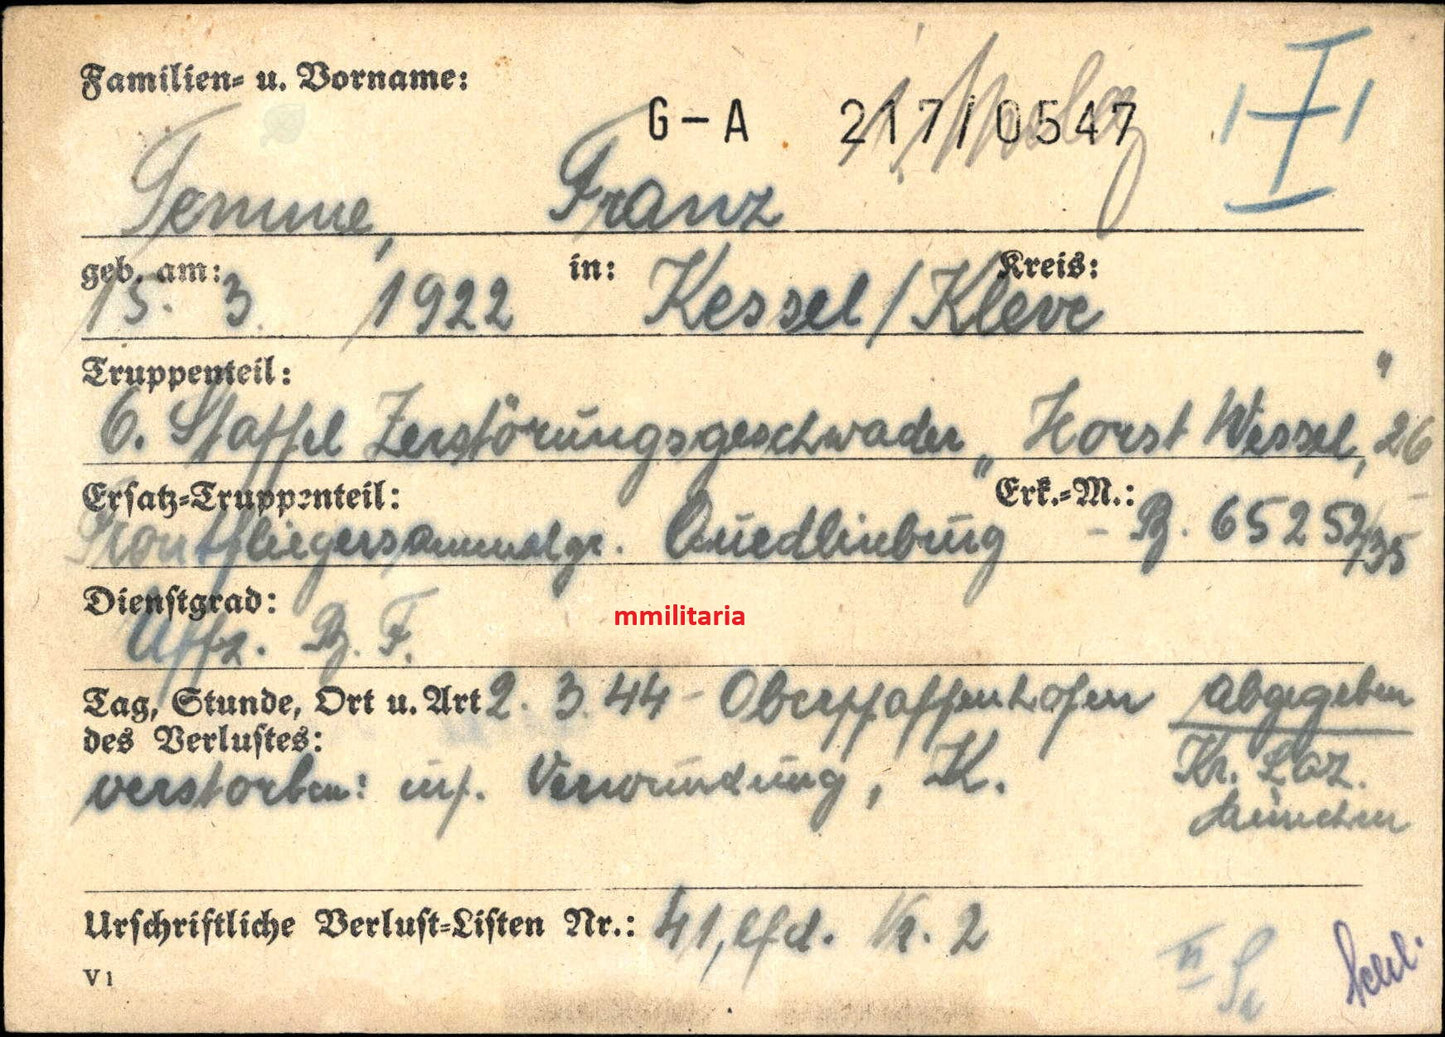 Familien- u. Vorname:
G-A 217/0547
I
Temme, Franz
geb. am: in: Kreis:
15. 3. 1922 Kessel / Kleve
Truppenteil:
6. Staffel Zerstörungsgeschwader „Horst Wessel", 26
Ersatz-Truppenteil: Erk.-M.:
Frontfliegersammelgr. Quedlinburg - B. 65252/35
Dienstgrad:
Uffz. B. F.
mmilitaria
Tag, Stunde, Ort u. Art 2. 3. 44 - Oberpfaffenhofen abgegeben
des Verlustes:
verstorben: inf. Verwundung, K. Kr. Laz.
München
Urschriftliche Verlust-Listen Nr.: 41, lfd. Nr. 2
V 1